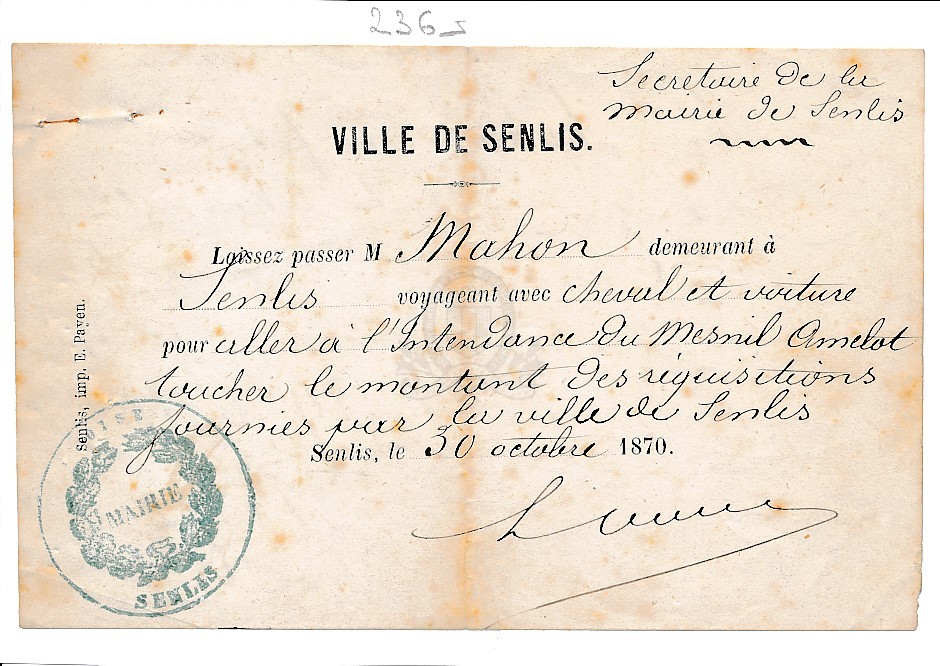 236
Secretaire de la
mairie de Senlis
VILLE DE SENLIS.
Laissez passer M Mahon demeurant à
Senlis voyageant avec cheval et voiture
pour aller à l'Intendance du Mesnil Amelot
toucher le montant des réquisitions
fournies par la ville de Senlis
Senlis, le 30 octobre 1870.
Senlis, imp. E. Payen.
OISE
MAIRIE
SENLIS